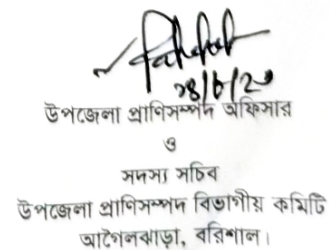 উপজেলা প্রাণিসম্পদ অফিসার
ও
সদস্য সচিব
উপজেলা প্রাণিসম্পদ বিভাগীয় কমিটি
আগৈলঝাড়া, বরিশাল।